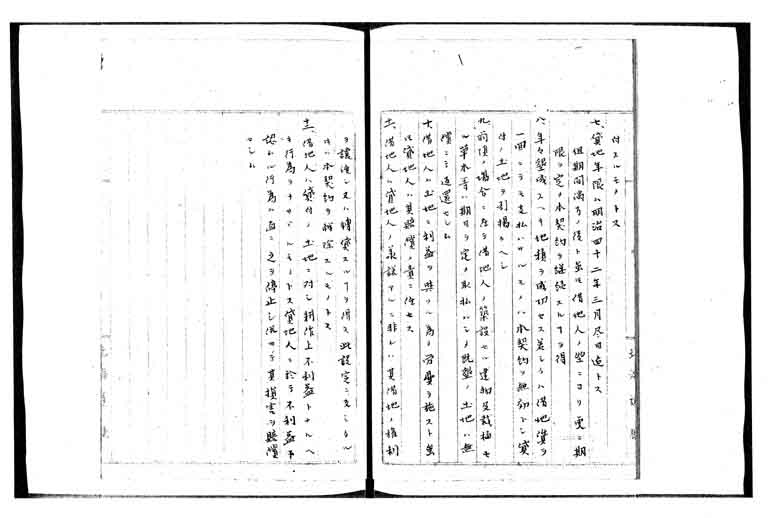 付スルモノトス
七、貸地年限ハ明治四十二年三月尽日迄トス
但期間満了ノ後ト雖モ借地人ノ望ニヨリ更ニ期
限ヲ定メ本契約ヲ継続スルヿヲ得
八、年々墾成スヘキ地積ヲ成功セス若シクハ借地賃ヲ
一回ニテモ支払ハサルモノハ本契約ヲ無効トシ貸
付ノ土地ヲ引揚クヘシ
九、前項ノ場合ニ在テ借地人ノ築設セル建物及栽植セ
ル草木等ハ期日ヲ定メ取払ハシメ既墾ノ土地ハ無
償ニテ返還セシム
十、借地人ハ土地ニ利益ヲ與フル為メ労費ヲ施スト雖
モ貸地人ハ其賠償ノ責ニ任セス
十一、借地人ハ貸地人ノ承諾アルニ非レハ其借地ノ権利
ヲ譲渡シ又ハ轉貸スルヿヲ得ス此設定ニ反シタル
トキハ本契約ヲ解除スルモノトス
十二、借地人ハ貸付ノ土地ニ対シ耕作上不利益トナルヘ
キ行為ヲナサヽルモノトス貸地人ニ於テ不利益ト
認ムル行為ハ直ニ之ヲ停止シ其損害ヲ賠償
セシム